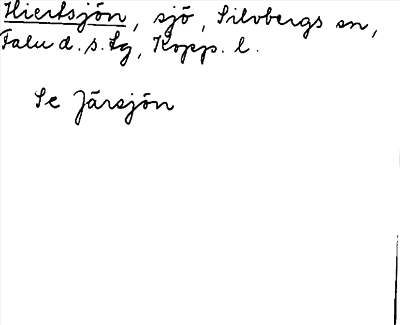 Hiertsjön, sjö, Silvbergs sn,
Falu d. s. tg, Kopp. l.
Se Järsjön